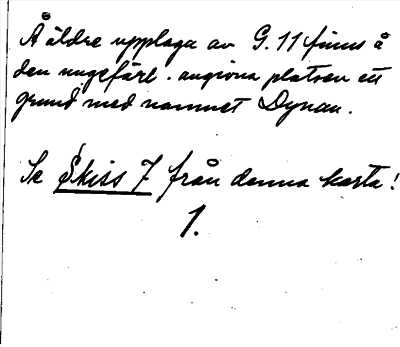 Å äldre upplaga av G. 11 finns å
den ungefärl. angivna platsen ett
grund med namnet Dynan.
Se Skiss 7 från denna karta!
1.